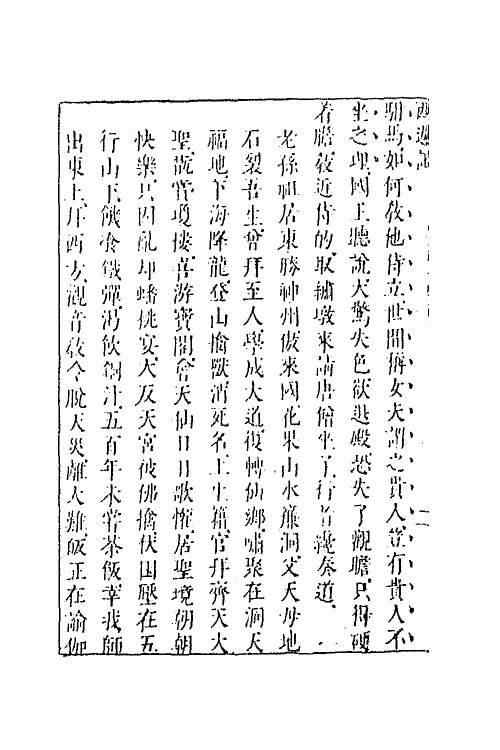 西遊記
駙馬如何教他侍立世間稱女夫謂之貴人豈有貴人不
坐之理國王聽說大驚失色欲退殿恐失了觀瞻只得硬
着膽教近侍的取繡墩來請唐僧坐了行者纔奏道
老孫祖居東勝神州傲來國花果山水簾洞父天母地
石裂吾生曾拜至人學成大道復轉仙鄉嘯聚在洞天
福地下海降龍登山擒獸消死名上生籍官拜齊天大
聖翫賞瓊樓喜游寶閣會天仙日日歌懽居聖境朝朝
快樂只因亂却蟠桃宴大反天宮被佛擒伏困壓在五
行山下饑食鐵彈渴飲銅汁五百年未嘗茶飯幸我師
出東土拜西方觀音教令脫天災離大難皈正在瑜伽